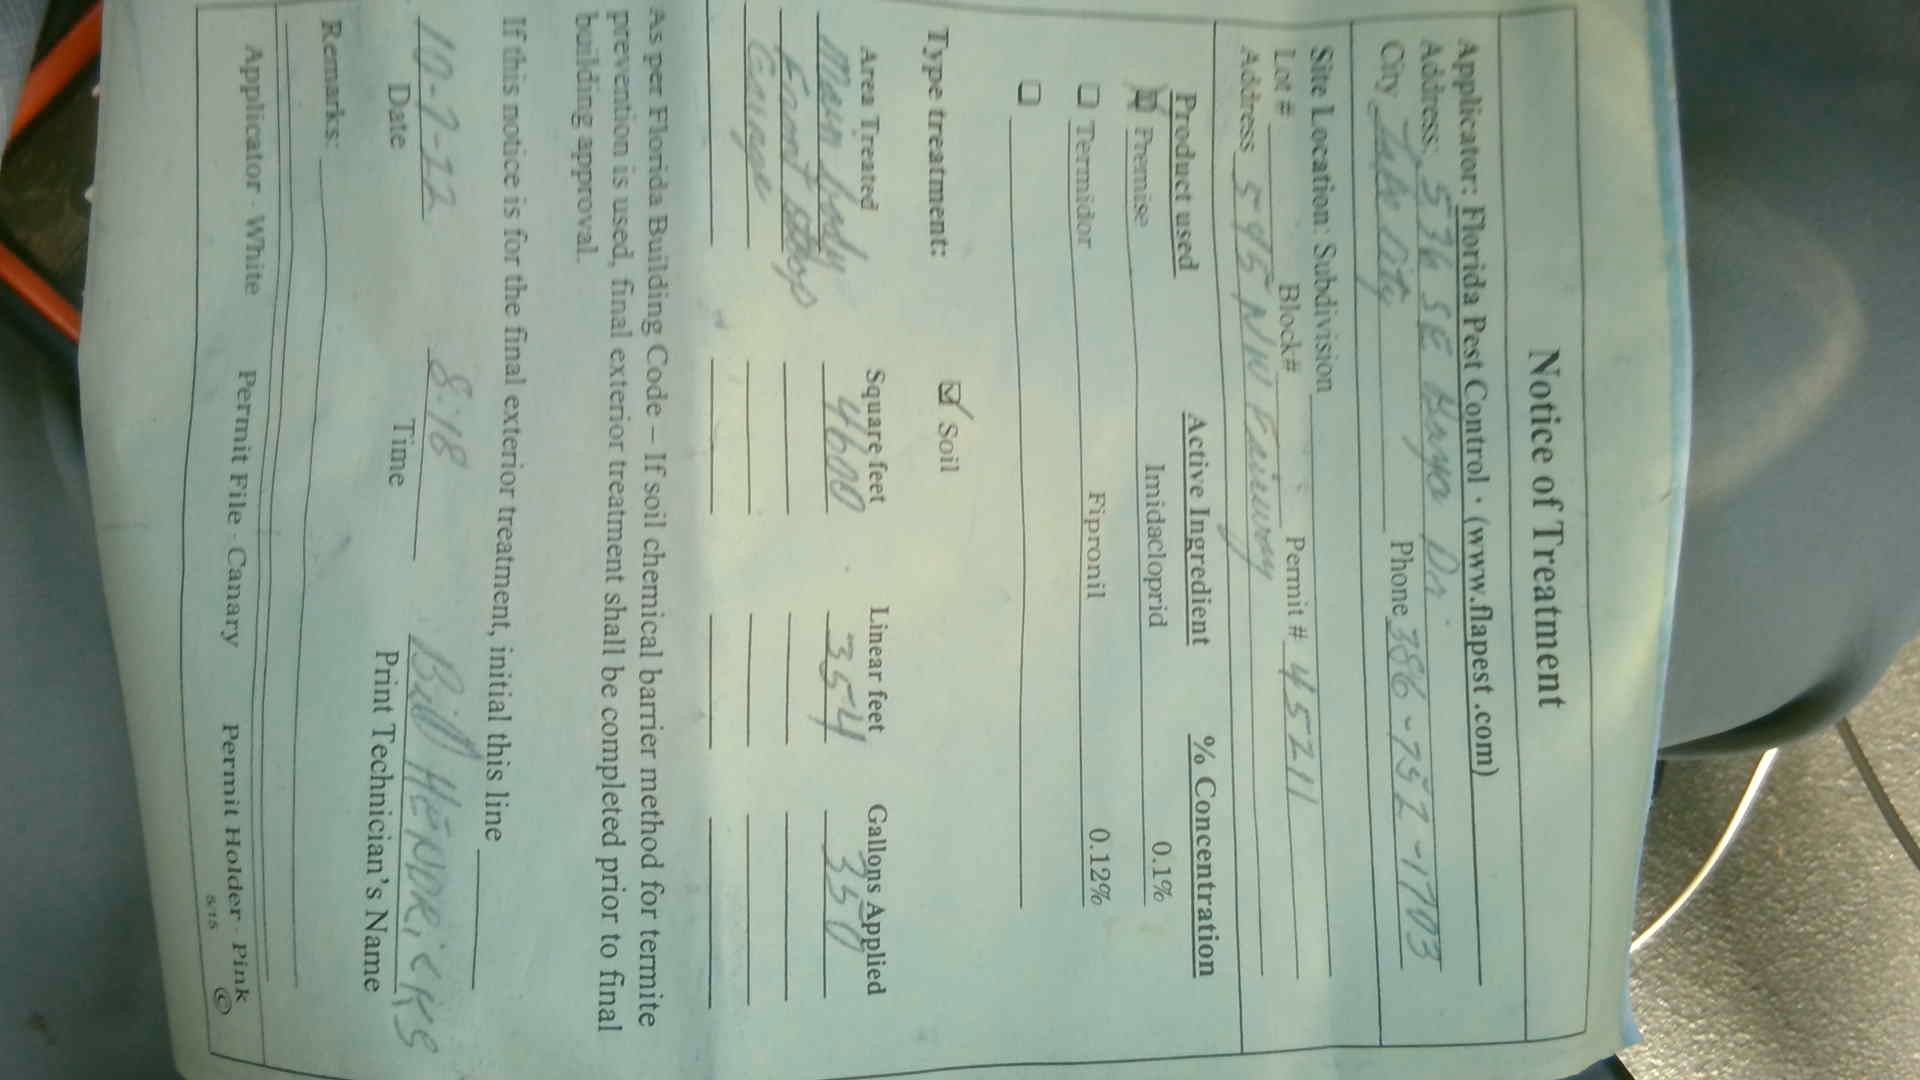 Notice of Treatment
Applicator: Florida Pest Control · (www.flapest.com)
Address: 536 SE Baya Dr
City Lake City Phone 386-752-1703
Site Location: Subdivision
Lot # Block# Permit # 45211
Address 595 NW Fairway
Product used Active Ingredient % Concentration
Premise Imidacloprid 0.1%
Termidor Fipronil 0.12%
Type treatment: Soil
Area Treated Square feet Linear feet Gallons Applied
Main body 4600 354 350
Front stoop
Garage
As per Florida Building Code – If soil chemical barrier method for termite
prevention is used, final exterior treatment shall be completed prior to final
building approval.
If this notice is for the final exterior treatment, initial this line
10-7-22 8:18 Bill HENDRicKS
Date Time Print Technician's Name
Remarks:
Applicator - White Permit File - Canary Permit Holder - Pink
8/15 ©